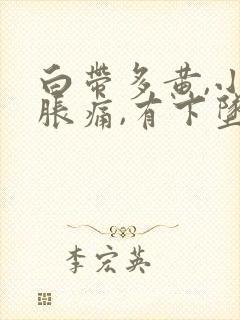 白带多黄,小
胀痛,有下坠
李宏英